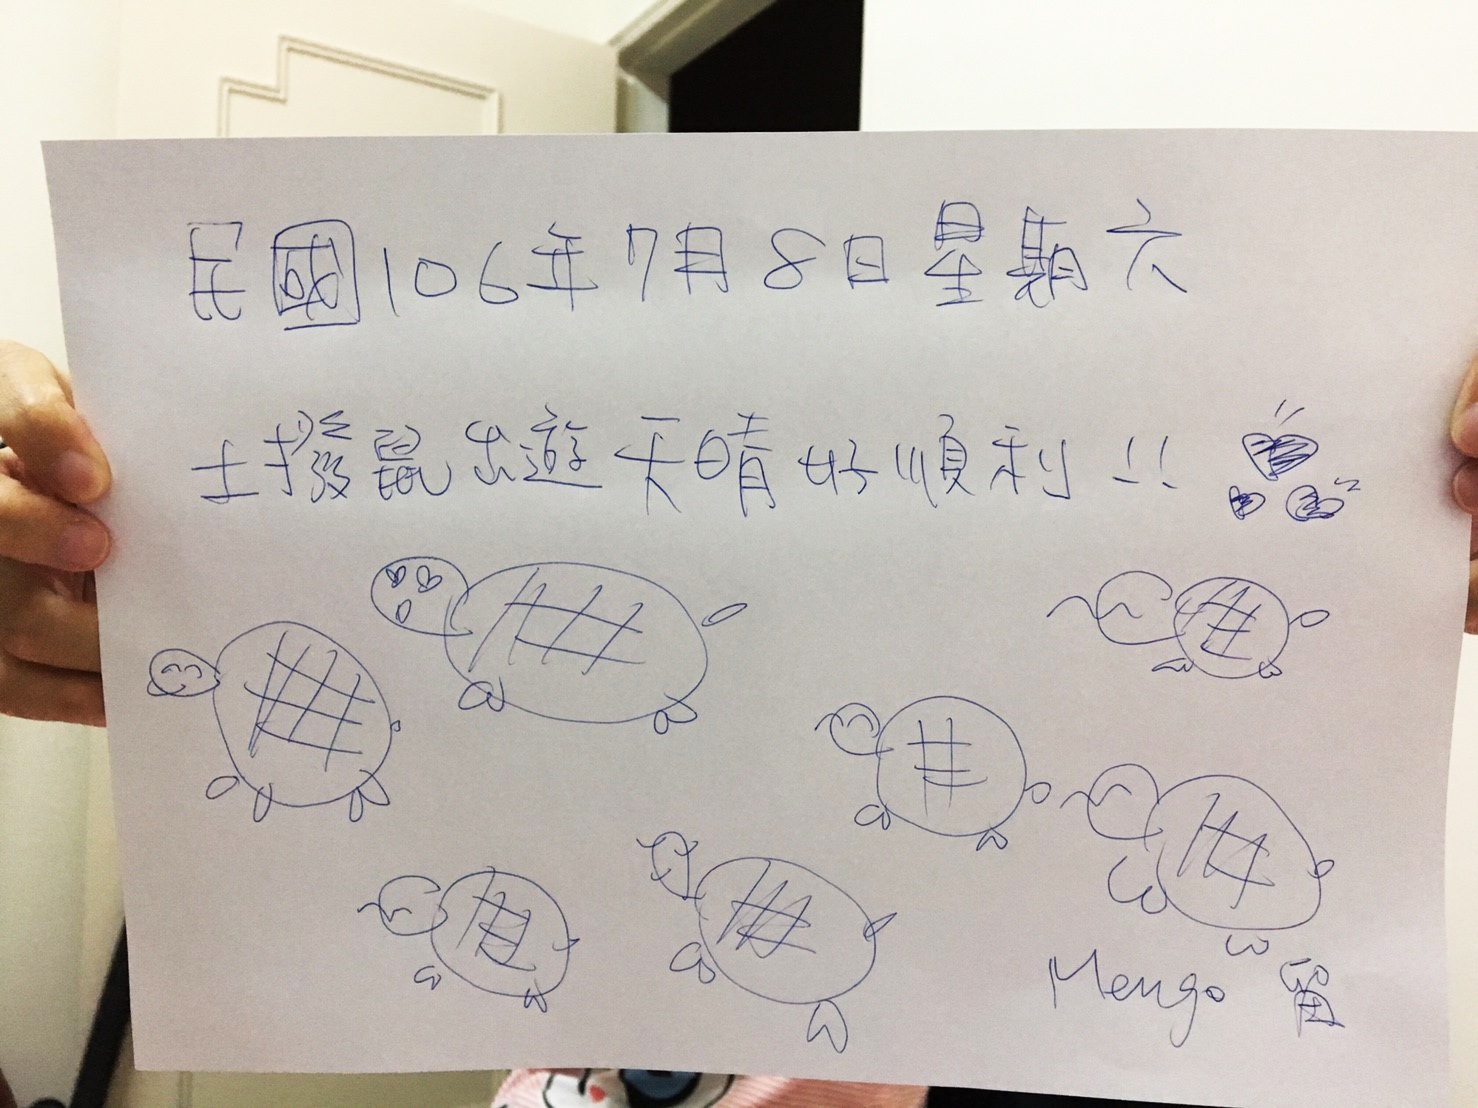 民國106年7月8日星期六
土撥鼠出遊天晴好順利!!
Mengo 留